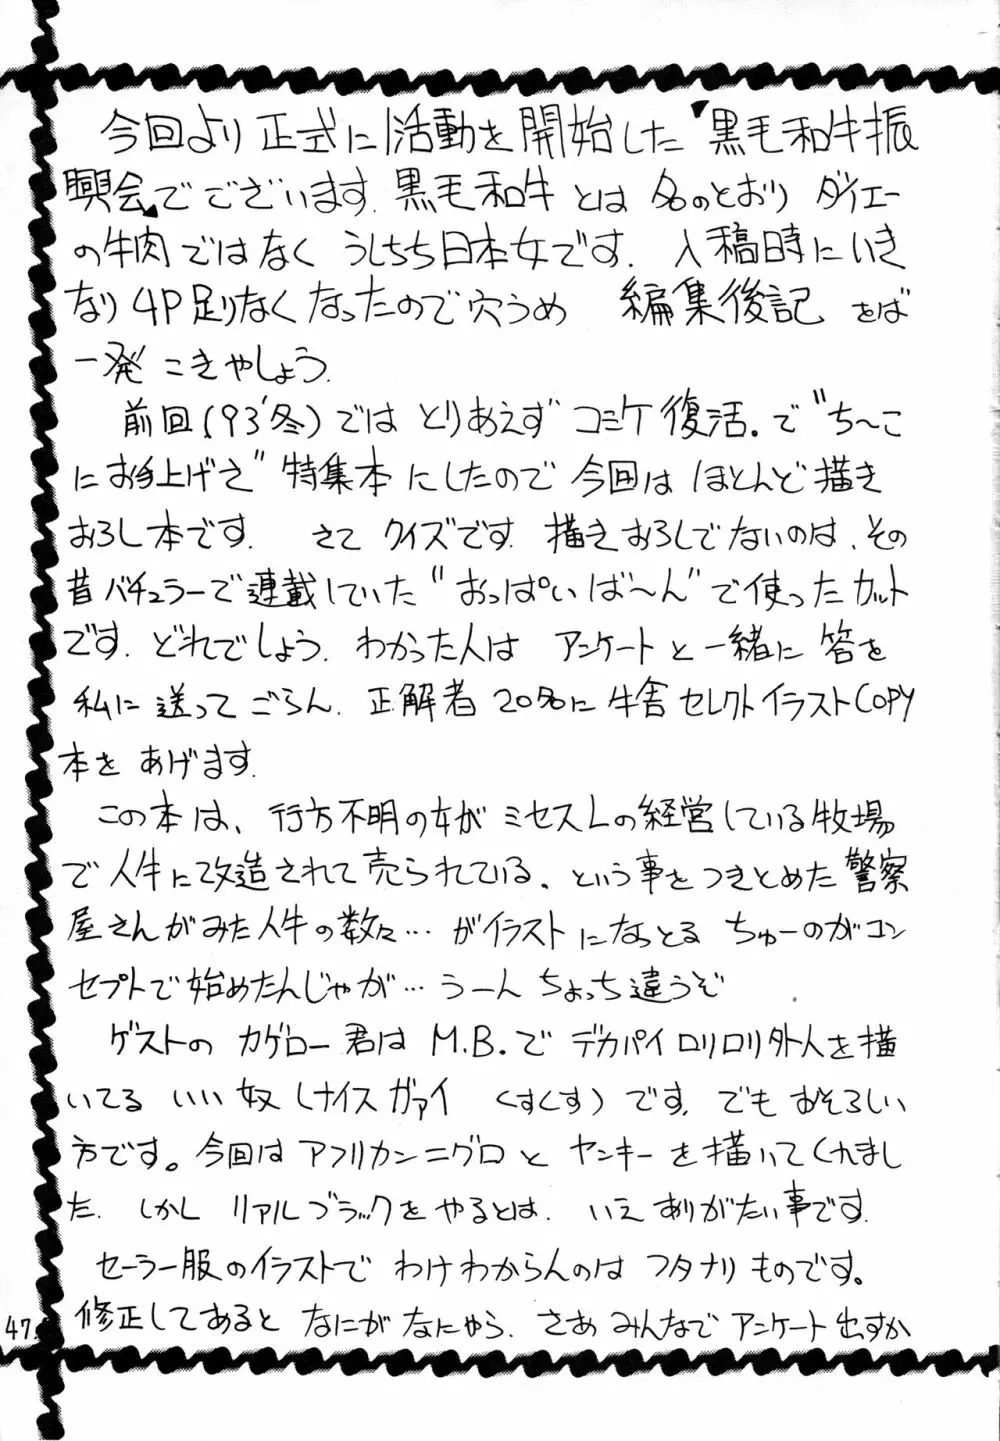 今回より正式に活動を開始した"黒毛和牛振
興会"でございます.黒毛和牛とは名のとおりダイエー
の牛肉ではなくうしちち日本女です.入稿時にいき
なり4P足りなくなったので穴うめ 編集後記をば
一発こきやしょう.
前回('93冬)ではとりあえずコミケ復活.で"ち〜こ
にお手上げさ"特集本にしたので今回はほとんど描き
おろし本です. さてクイズです.描きおろしでないのは、その
昔バチュラーで連載していた"おっぱいば〜ん"で使ったカット
です.どれでしょう.わかった人はアンケートと一緒に答を
私に送ってごらん.正解者20%に牛舎セレクトイラストCOPY
本をあげます.
この本は、行方不明の女がミセスLの経営している牧場
で人牛に改造されて売られている、という事をつきとめた警察
屋さんがみた人牛の数々…がイラストになっとるちゅーのがコン
セプトで始めたんじゃが…うーんちょっち違うぞ
ゲストのカゲロー君はM.B.でデカパイロリロリ外人を描
いてるいい奴(ナイスガァイ くすくす)です.でもおそろしい
方です。今回はアフリカンニグロとヤンキーを描いてくれまし
た.しかしリアルブラックをやるとは.いえありがたい事です.
セーラー服のイラストでわけわからんのはフタナリものです。
修正してあるとなにがなにやら.さあみんなでアンケート出すか
47